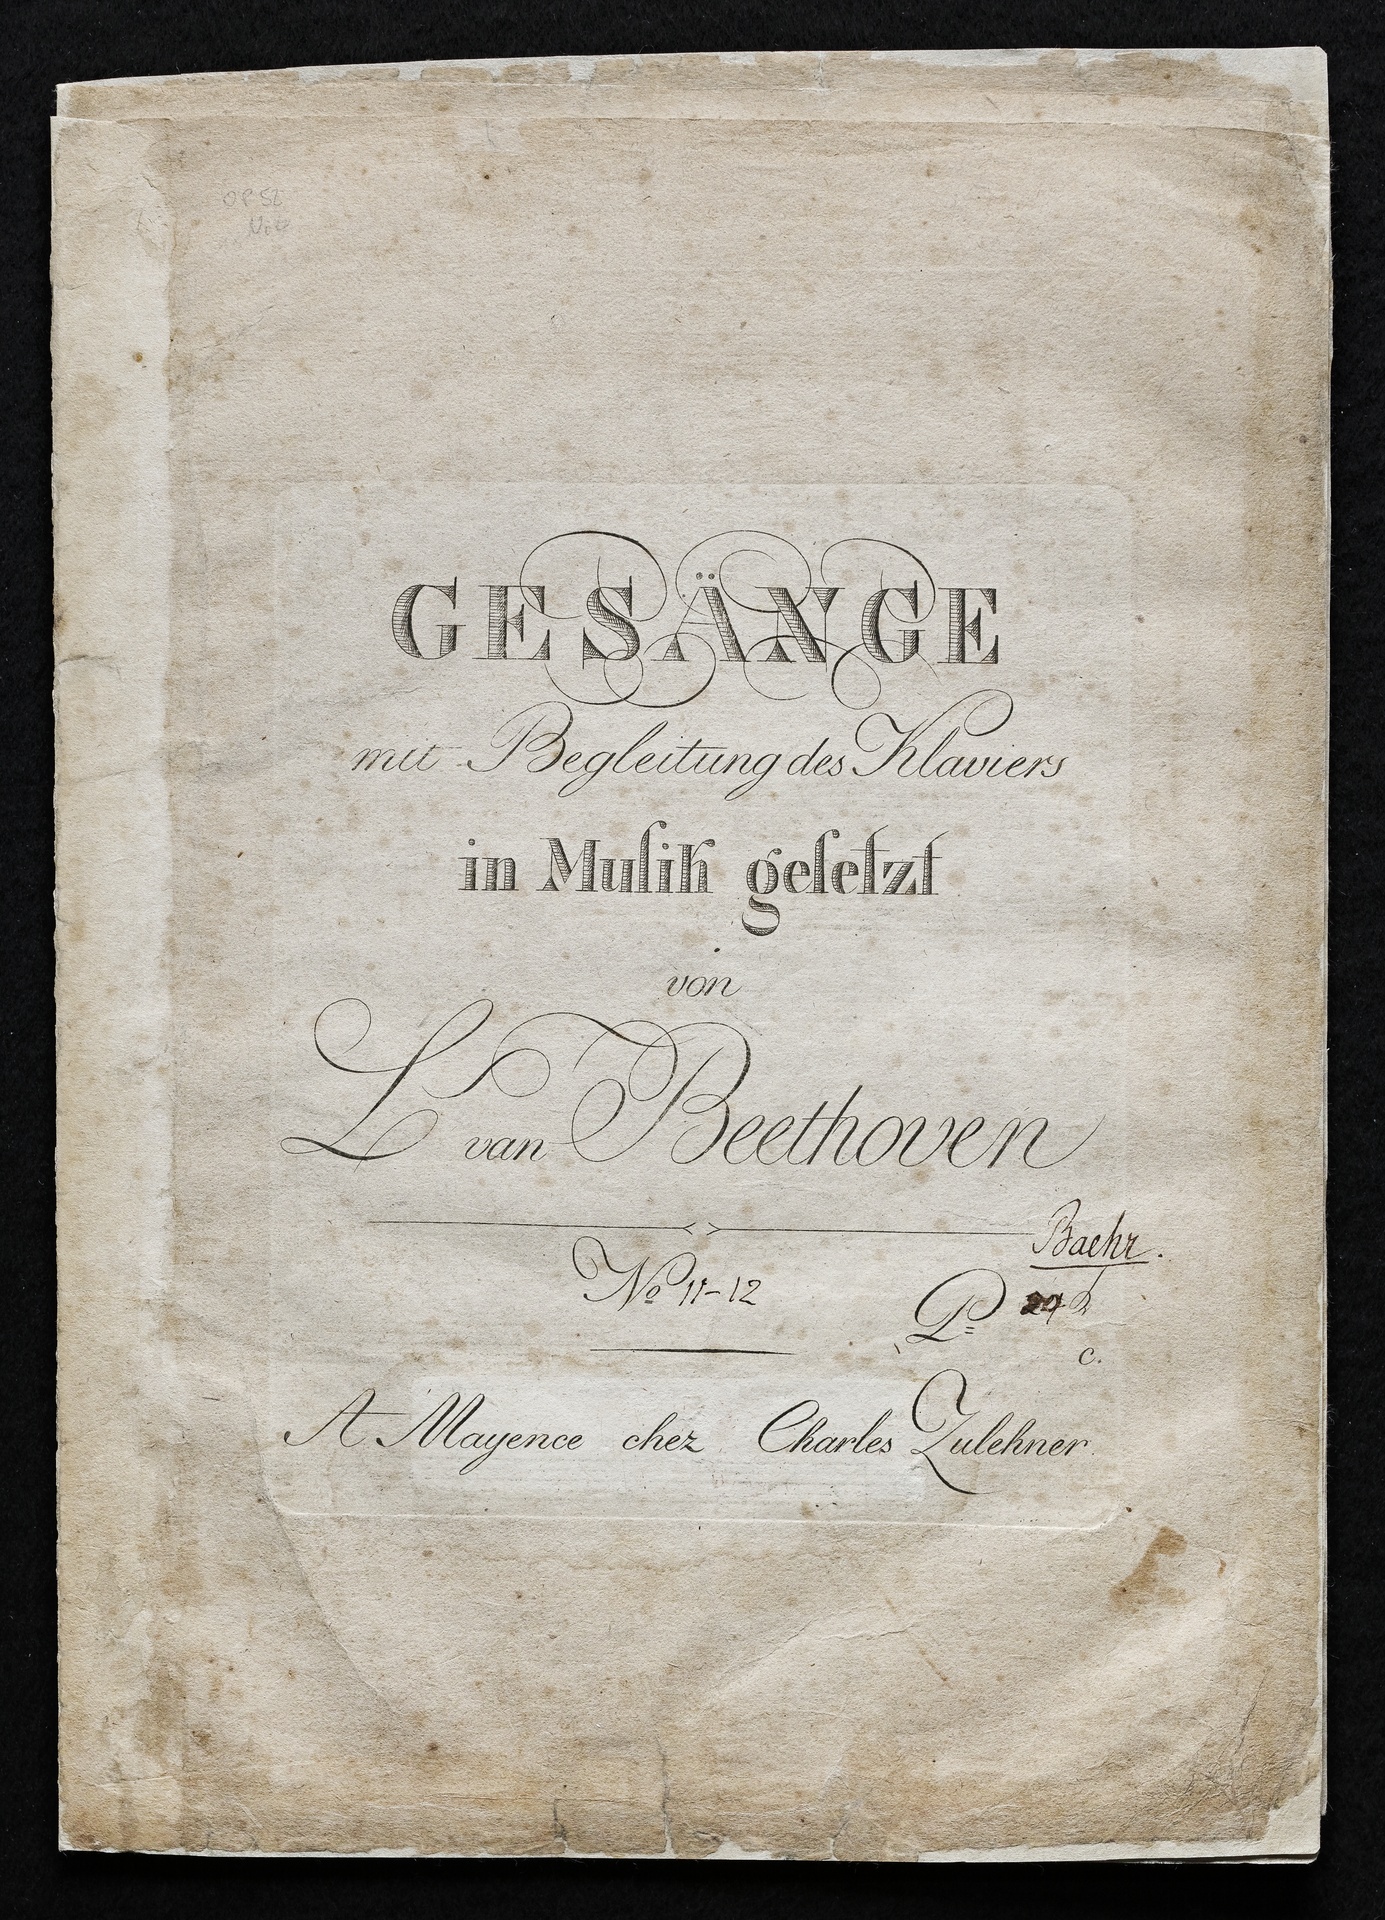 OP 52
No 6
GESÄNGE
mit Begleitung des Klaviers
in Muſik geſetzt
von
L van Beethoven
Baehr.
No 11-12
Pr=
c.
A Mayence chez Charles Zulehner.